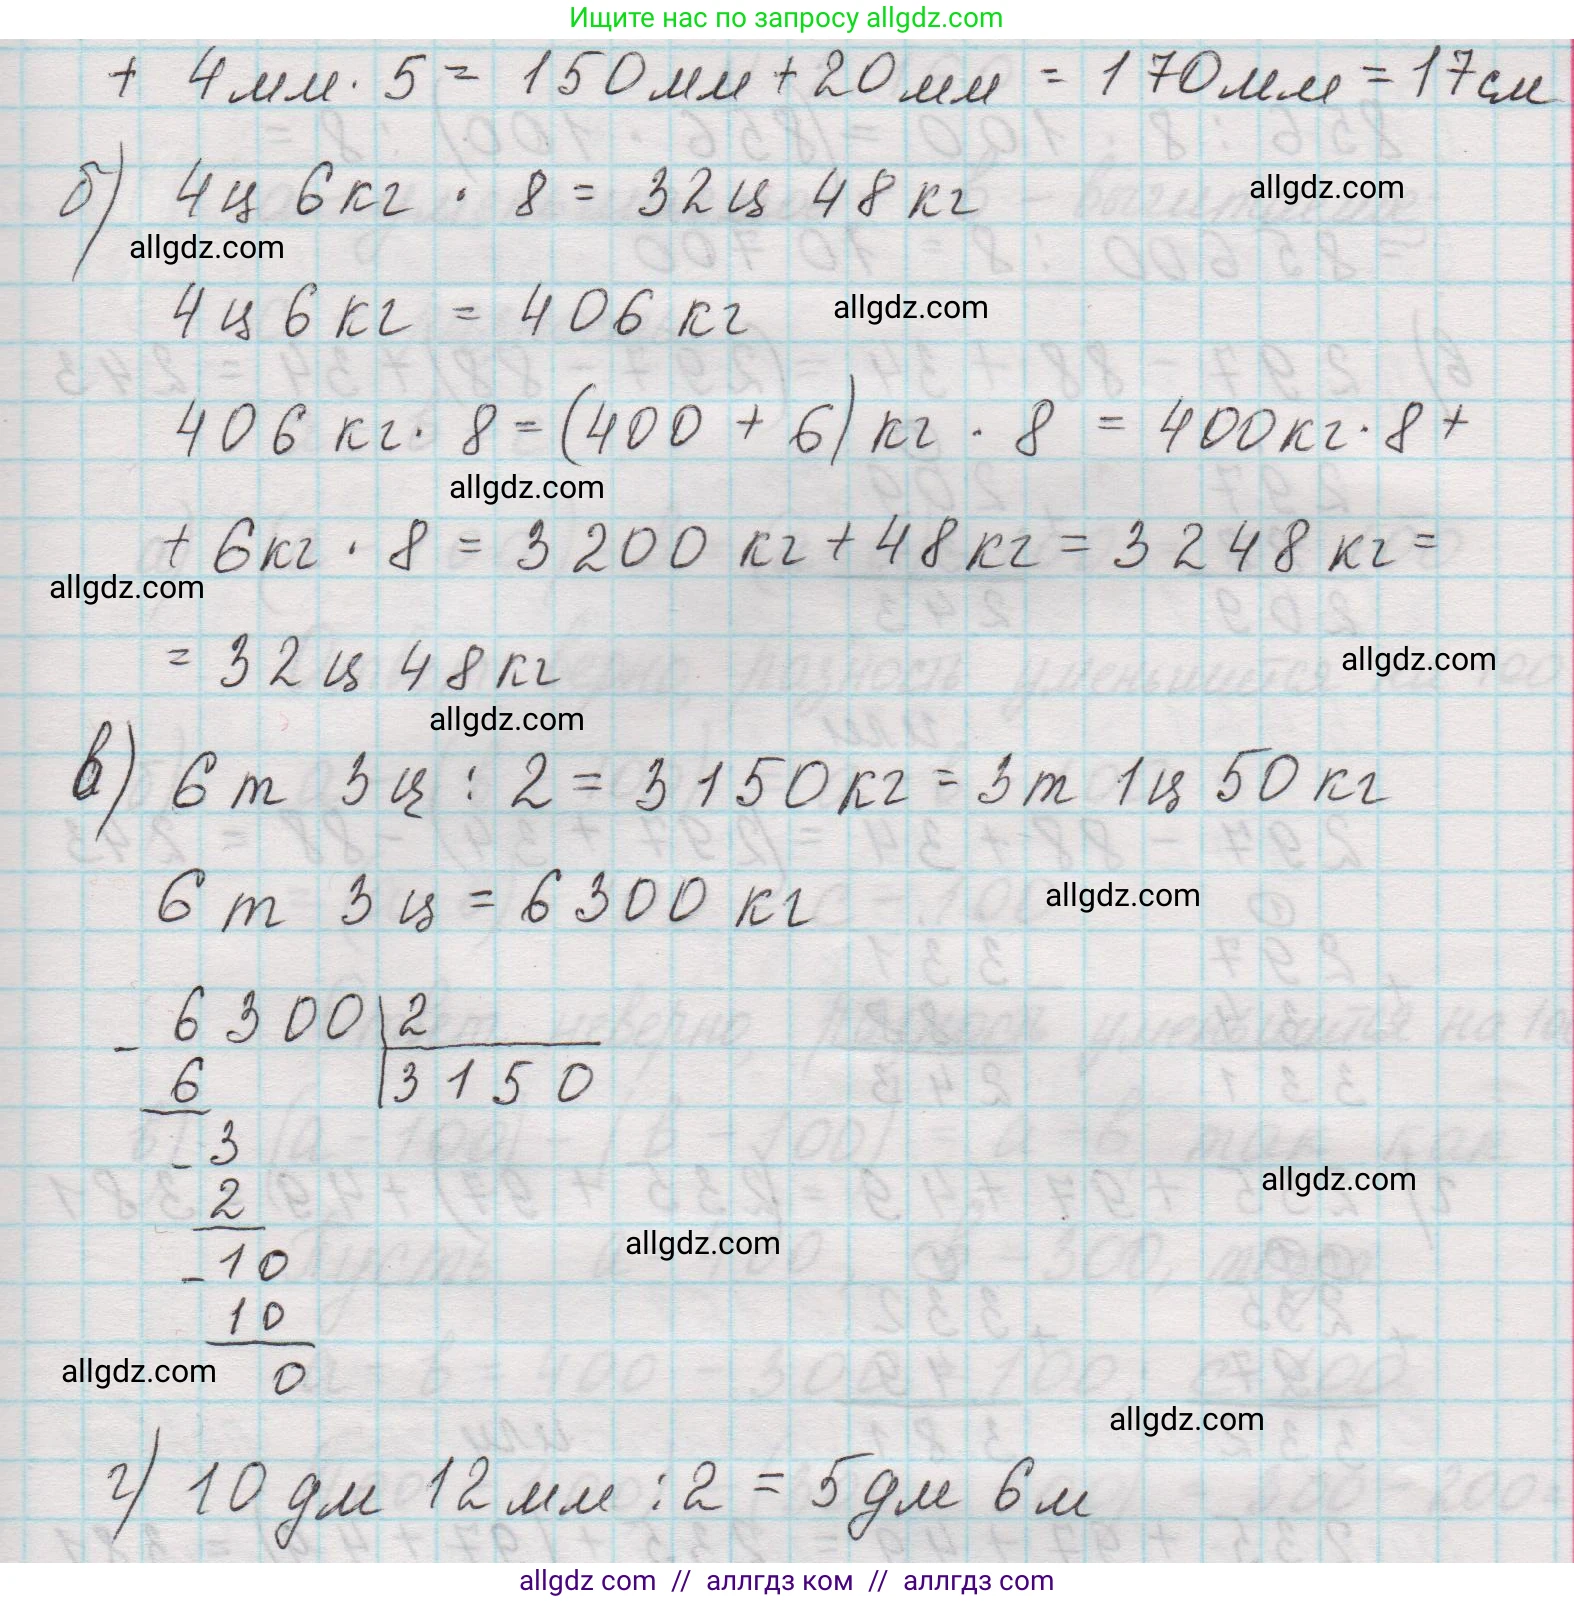 Ищите нас по запросу allgdz.com
+ 4мм · 5 = 150мм + 20мм = 170мм = 17см
б) 4ц 6кг · 8 = 32ц 48кг
allgdz.com
allgdz.com
4ц 6кг = 406 кг
allgdz.com
406 кг · 8 = (400 + 6) кг · 8 = 400кг · 8 +
allgdz.com
+ 6кг · 8 = 3200 кг + 48кг = 3248 кг =
allgdz.com
= 32ц 48кг
allgdz.com
allgdz.com
в) 6т 3ц : 2 = 3150кг = 3т 1ц 50кг
6т 3ц = 6300 кг
allgdz.com
- 6300 2
6 3150
- 3
allgdz.com
2
allgdz.com
- 10
10
allgdz.com
0
allgdz.com
г) 10 дм 12мм : 2 = 5дм 6м
allgdz.com // аллгдз ком // аллгдз.com